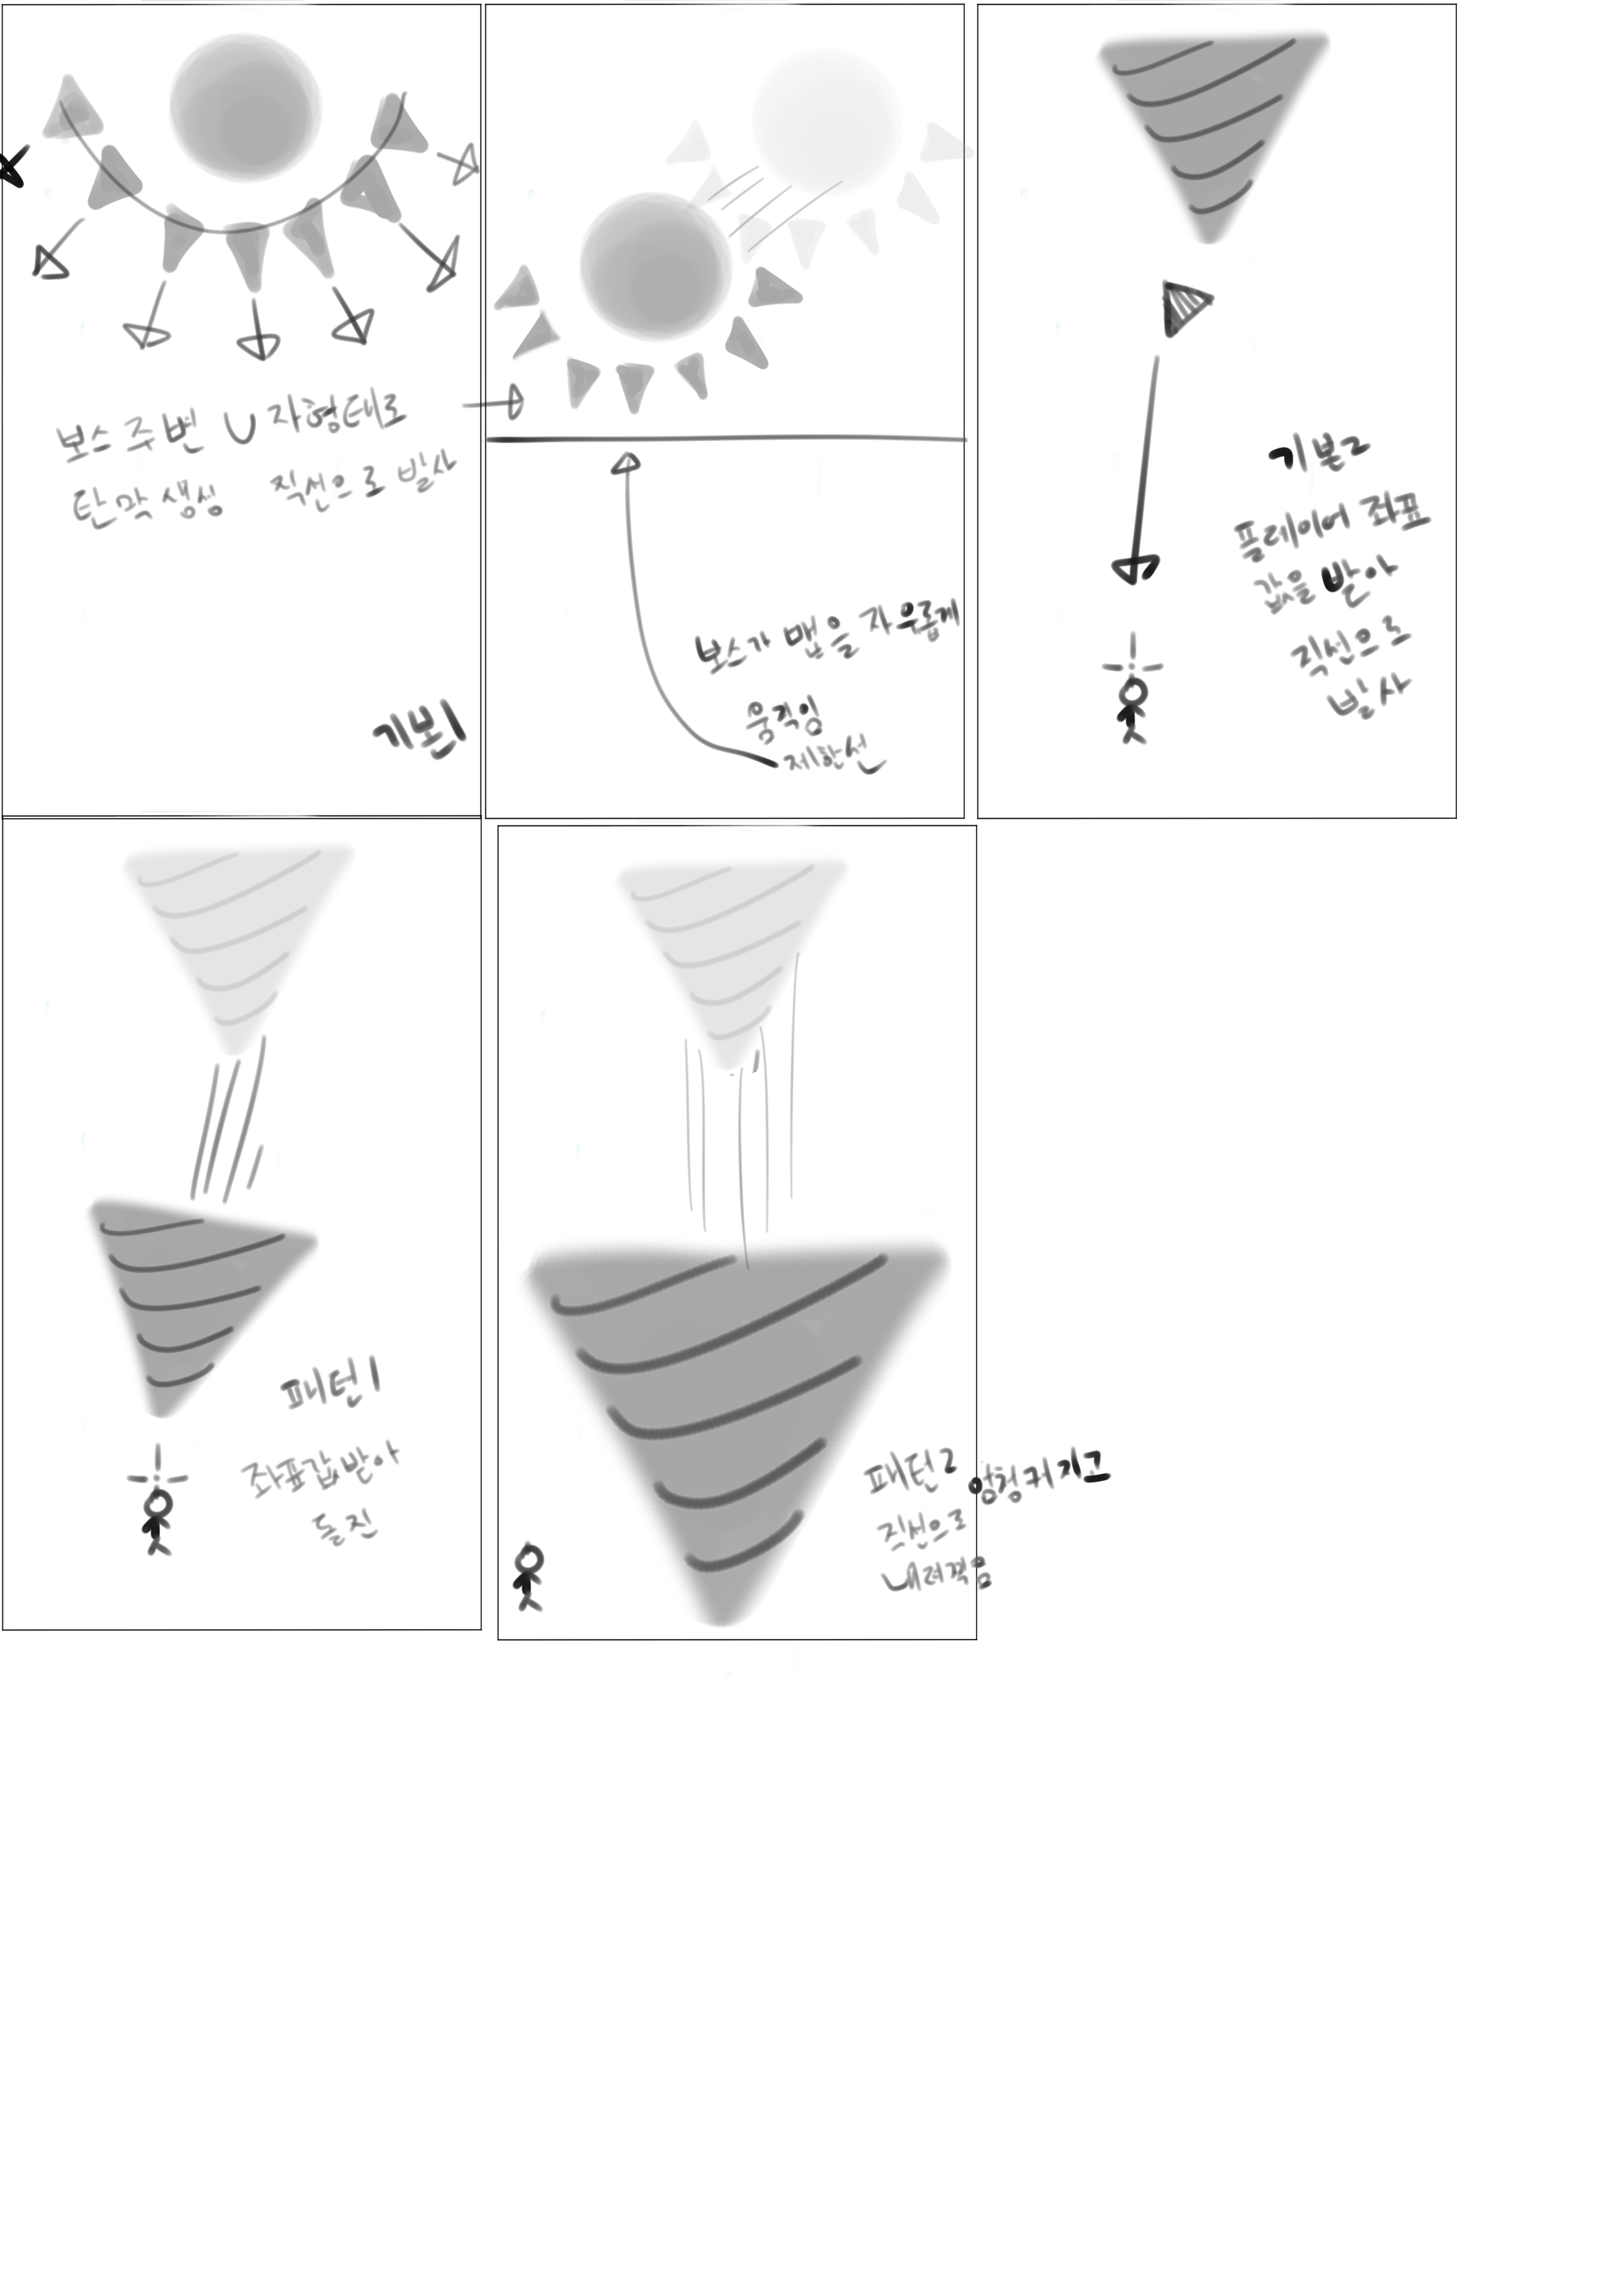 보스 주변 U 자형태로
탄막 생성 직선으로 발사
기본1
보스가 맵을 자유롭게
움직임
제한선
기본2
플레이어 좌표
값을 받아
직선으로
발사
패턴1
좌표값받아
돌진
패턴2 엄청커지고
직선으로
내려찍음